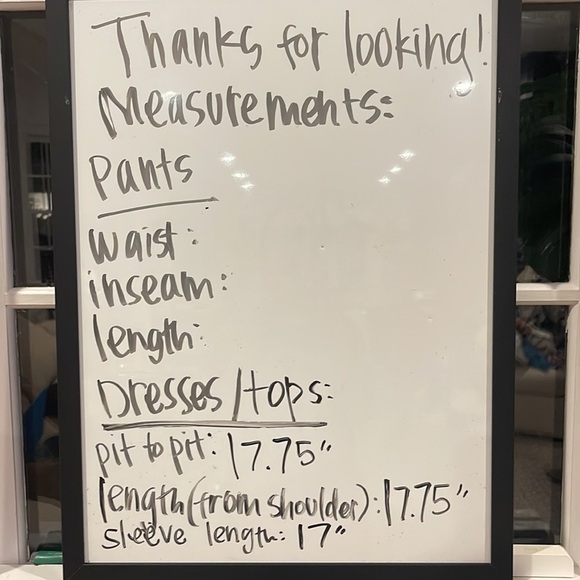 Thanks for looking!
Measurements:
Pants
waist:
inseam:
length:
Dresses/tops:
pit to pit: 17.75"
length(from shoulder): 17.75"
sleeve length: 17"